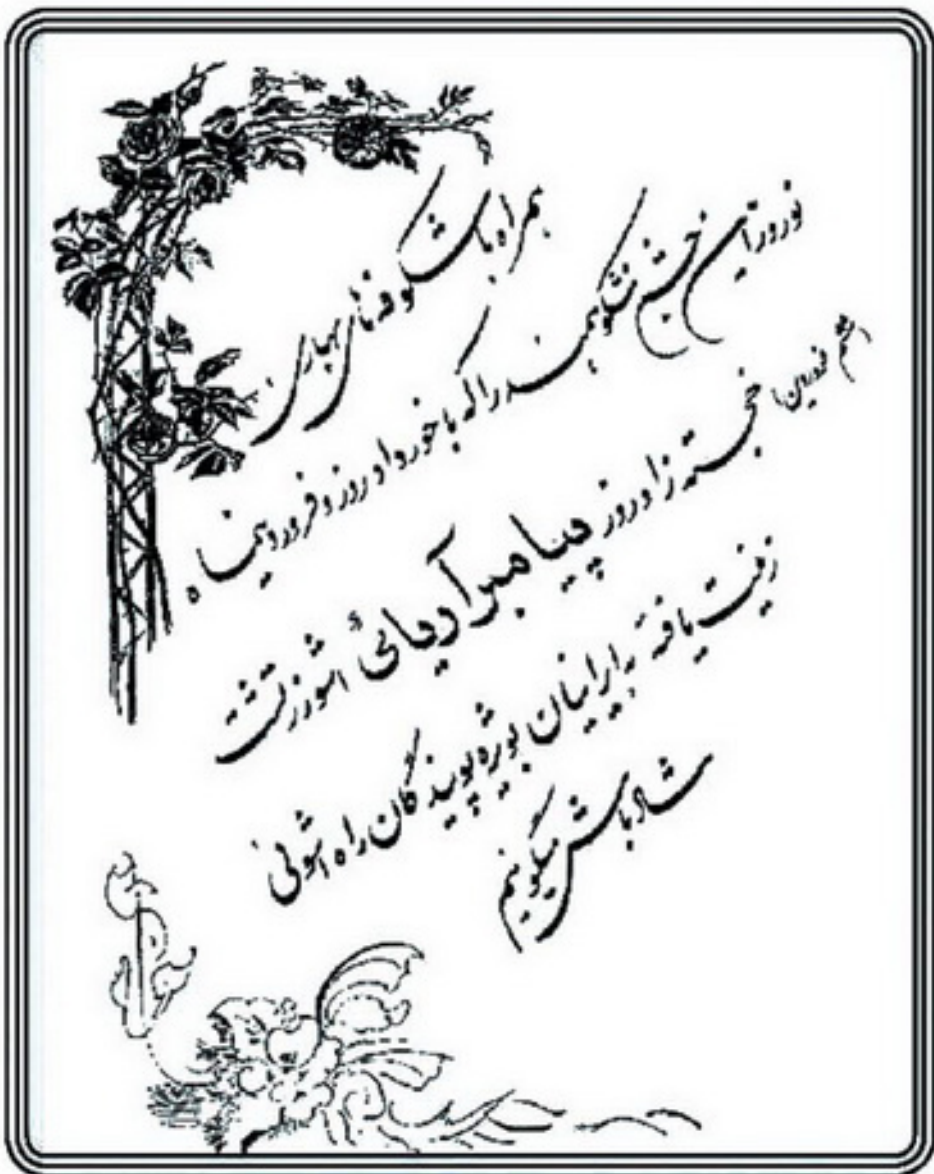 همراه با شکوفه‌های بهاری
نوروز آیین جشن شکوهمند را که با خورداد روز و فروردینماه
(ششم فروردین) خجسته زادروز پیامبر آریائی اشوزرتشت
زینت یافته به ایرانیان بویژه پویندگان راه اشوئی
شادباش میگوئیم